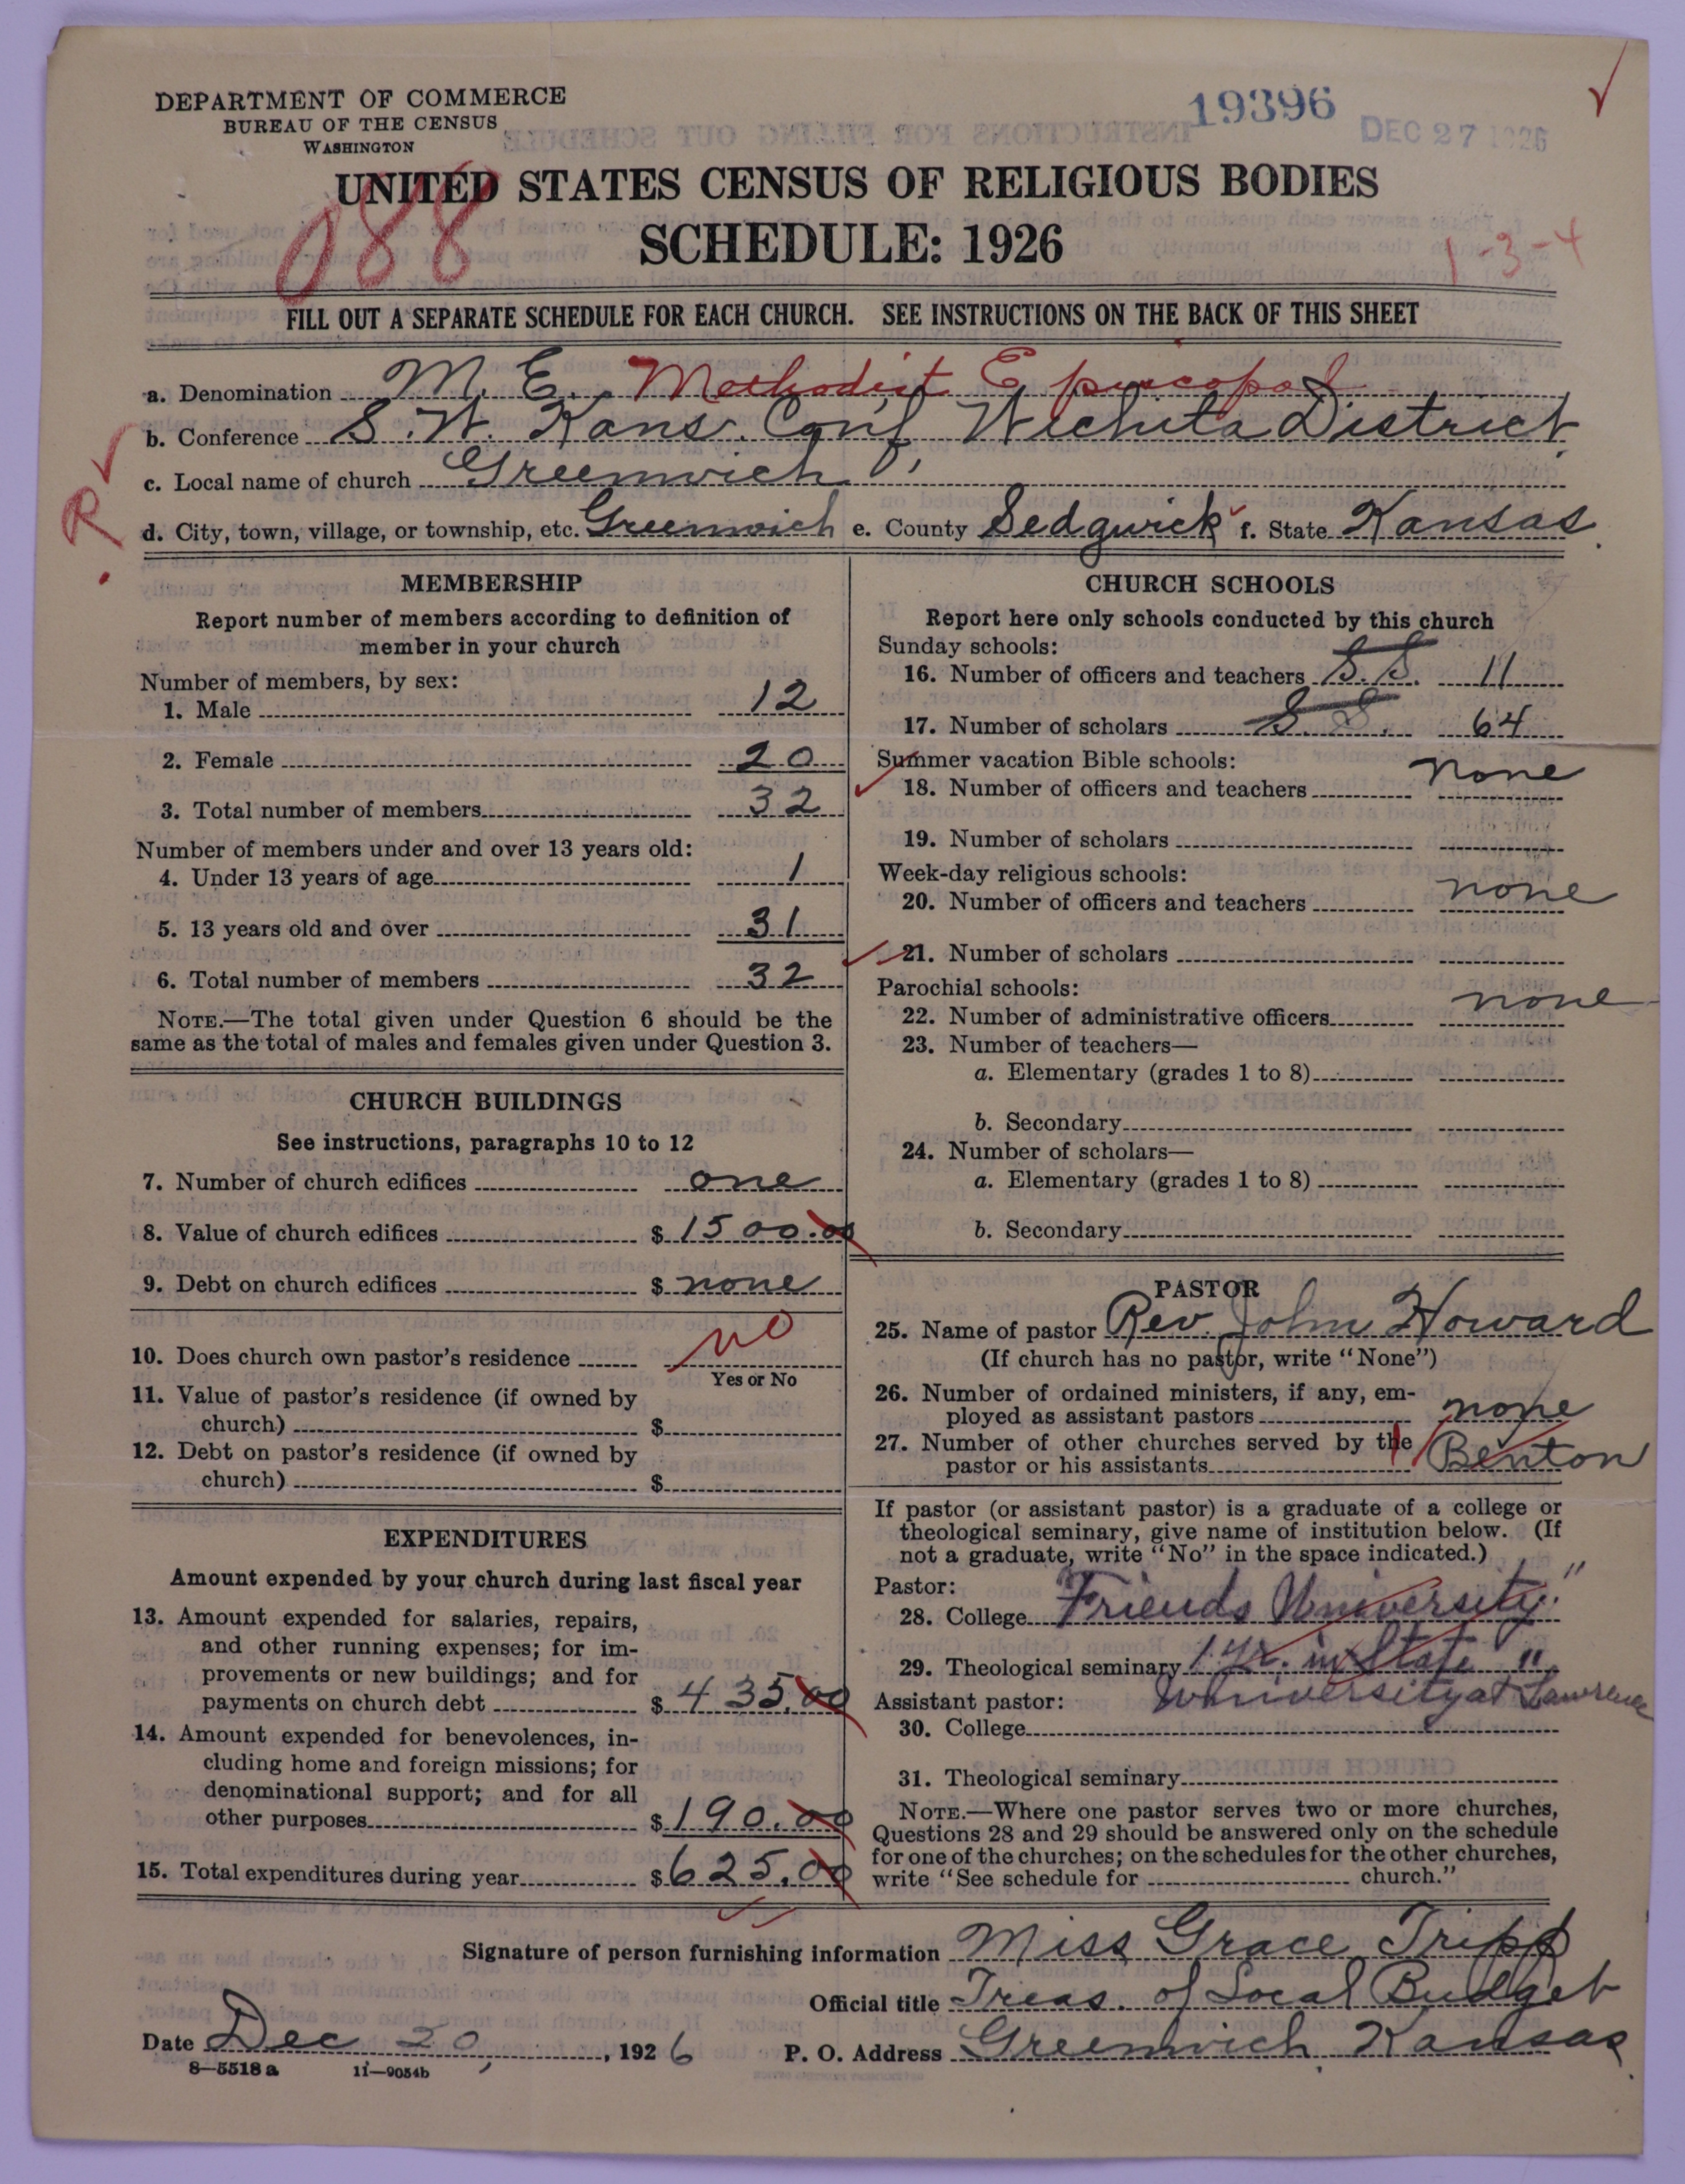 DEPARTMENT OF COMMERCE
BUREAU OF THE CENSUS
WASHINGTON
19396
DEC 27 1926
UNITED STATES CENSUS OF RELIGIOUS BODIES
SCHEDULE: 1926
088
1-3-4
FILL OUT A SEPARATE SCHEDULE FOR EACH CHURCH. SEE INSTRUCTIONS ON THE BACK OF THIS SHEET
a. Denomination M. E. Methodist Episcopal
b. Conference S. W. Kans. Conf, Wichita District.
c. Local name of church Greenwich
R
d. City, town, village, or township, etc. Greenwich e. County Sedgwick f. State Kansas.
MEMBERSHIP
Report number of members according to definition of
member in your church
Number of members, by sex:
1. Male 12
2. Female 20
3. Total number of members 32
Number of members under and over 13 years old:
4. Under 13 years of age 1
5. 13 years old and over 31
6. Total number of members 32
NOTE.—The total given under Question 6 should be the
same as the total of males and females given under Question 3.
CHURCH BUILDINGS
See instructions, paragraphs 10 to 12
7. Number of church edifices one
8. Value of church edifices $ 1500.00
9. Debt on church edifices $ none
10. Does church own pastor's residence no
Yes or No
11. Value of pastor's residence (if owned by
church) $
12. Debt on pastor's residence (if owned by
church) $
EXPENDITURES
Amount expended by your church during last fiscal year
13. Amount expended for salaries, repairs,
and other running expenses; for im-
provements or new buildings; and for
payments on church debt $ 435.00
14. Amount expended for benevolences, in-
cluding home and foreign missions; for
denominational support; and for all
other purposes $ 190.00
15. Total expenditures during year $ 625.00
CHURCH SCHOOLS
Report here only schools conducted by this church
Sunday schools:
16. Number of officers and teachers S. S. 11
17. Number of scholars S. S. 64
Summer vacation Bible schools:
18. Number of officers and teachers none
19. Number of scholars
Week-day religious schools:
20. Number of officers and teachers none
21. Number of scholars
Parochial schools:
22. Number of administrative officers none
23. Number of teachers—
a. Elementary (grades 1 to 8)
b. Secondary
24. Number of scholars—
a. Elementary (grades 1 to 8)
b. Secondary
PASTOR
25. Name of pastor Rev. John Howard
(If church has no pastor, write "None")
26. Number of ordained ministers, if any, em-
ployed as assistant pastors none
27. Number of other churches served by the
pastor or his assistants 1 Benton
If pastor (or assistant pastor) is a graduate of a college or
theological seminary, give name of institution below. (If
not a graduate, write "No" in the space indicated.)
Pastor:
28. College "Friends University."
29. Theological seminary 1 yr. in State "
Assistant pastor: University at Lawrence
30. College
31. Theological seminary
NOTE.—Where one pastor serves two or more churches,
Questions 28 and 29 should be answered only on the schedule
for one of the churches; on the schedules for the other churches,
write "See schedule for church."
Signature of person furnishing information Miss Grace Tripp
Official title Treas. of Local Budget
Date Dec 20, 1926 P. O. Address Greenwich, Kansas.
8—5518 a 11—9054b